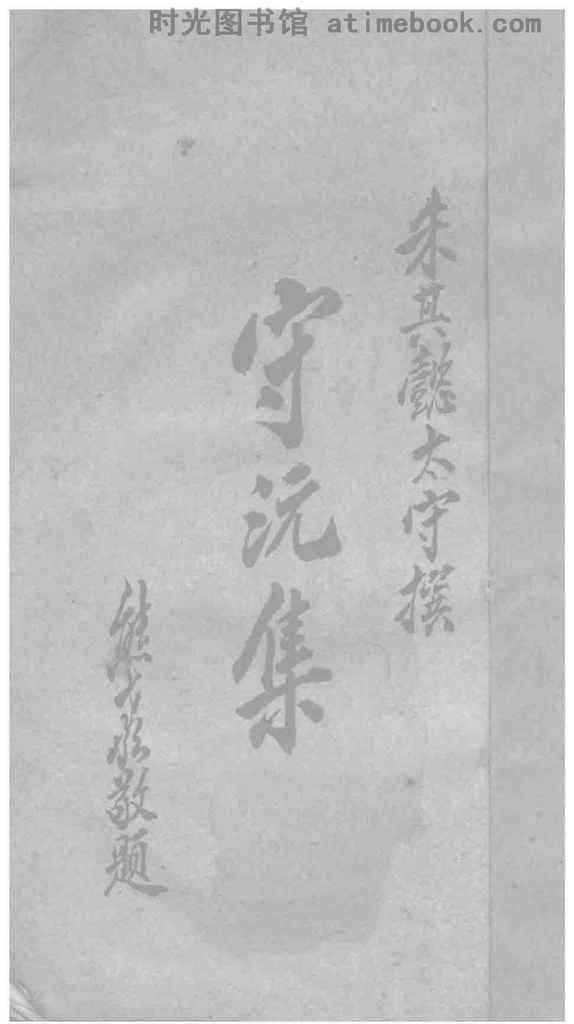 时光图书馆 atimebook.com
朱其懿太守撰
守沅集
熊希齡敬題